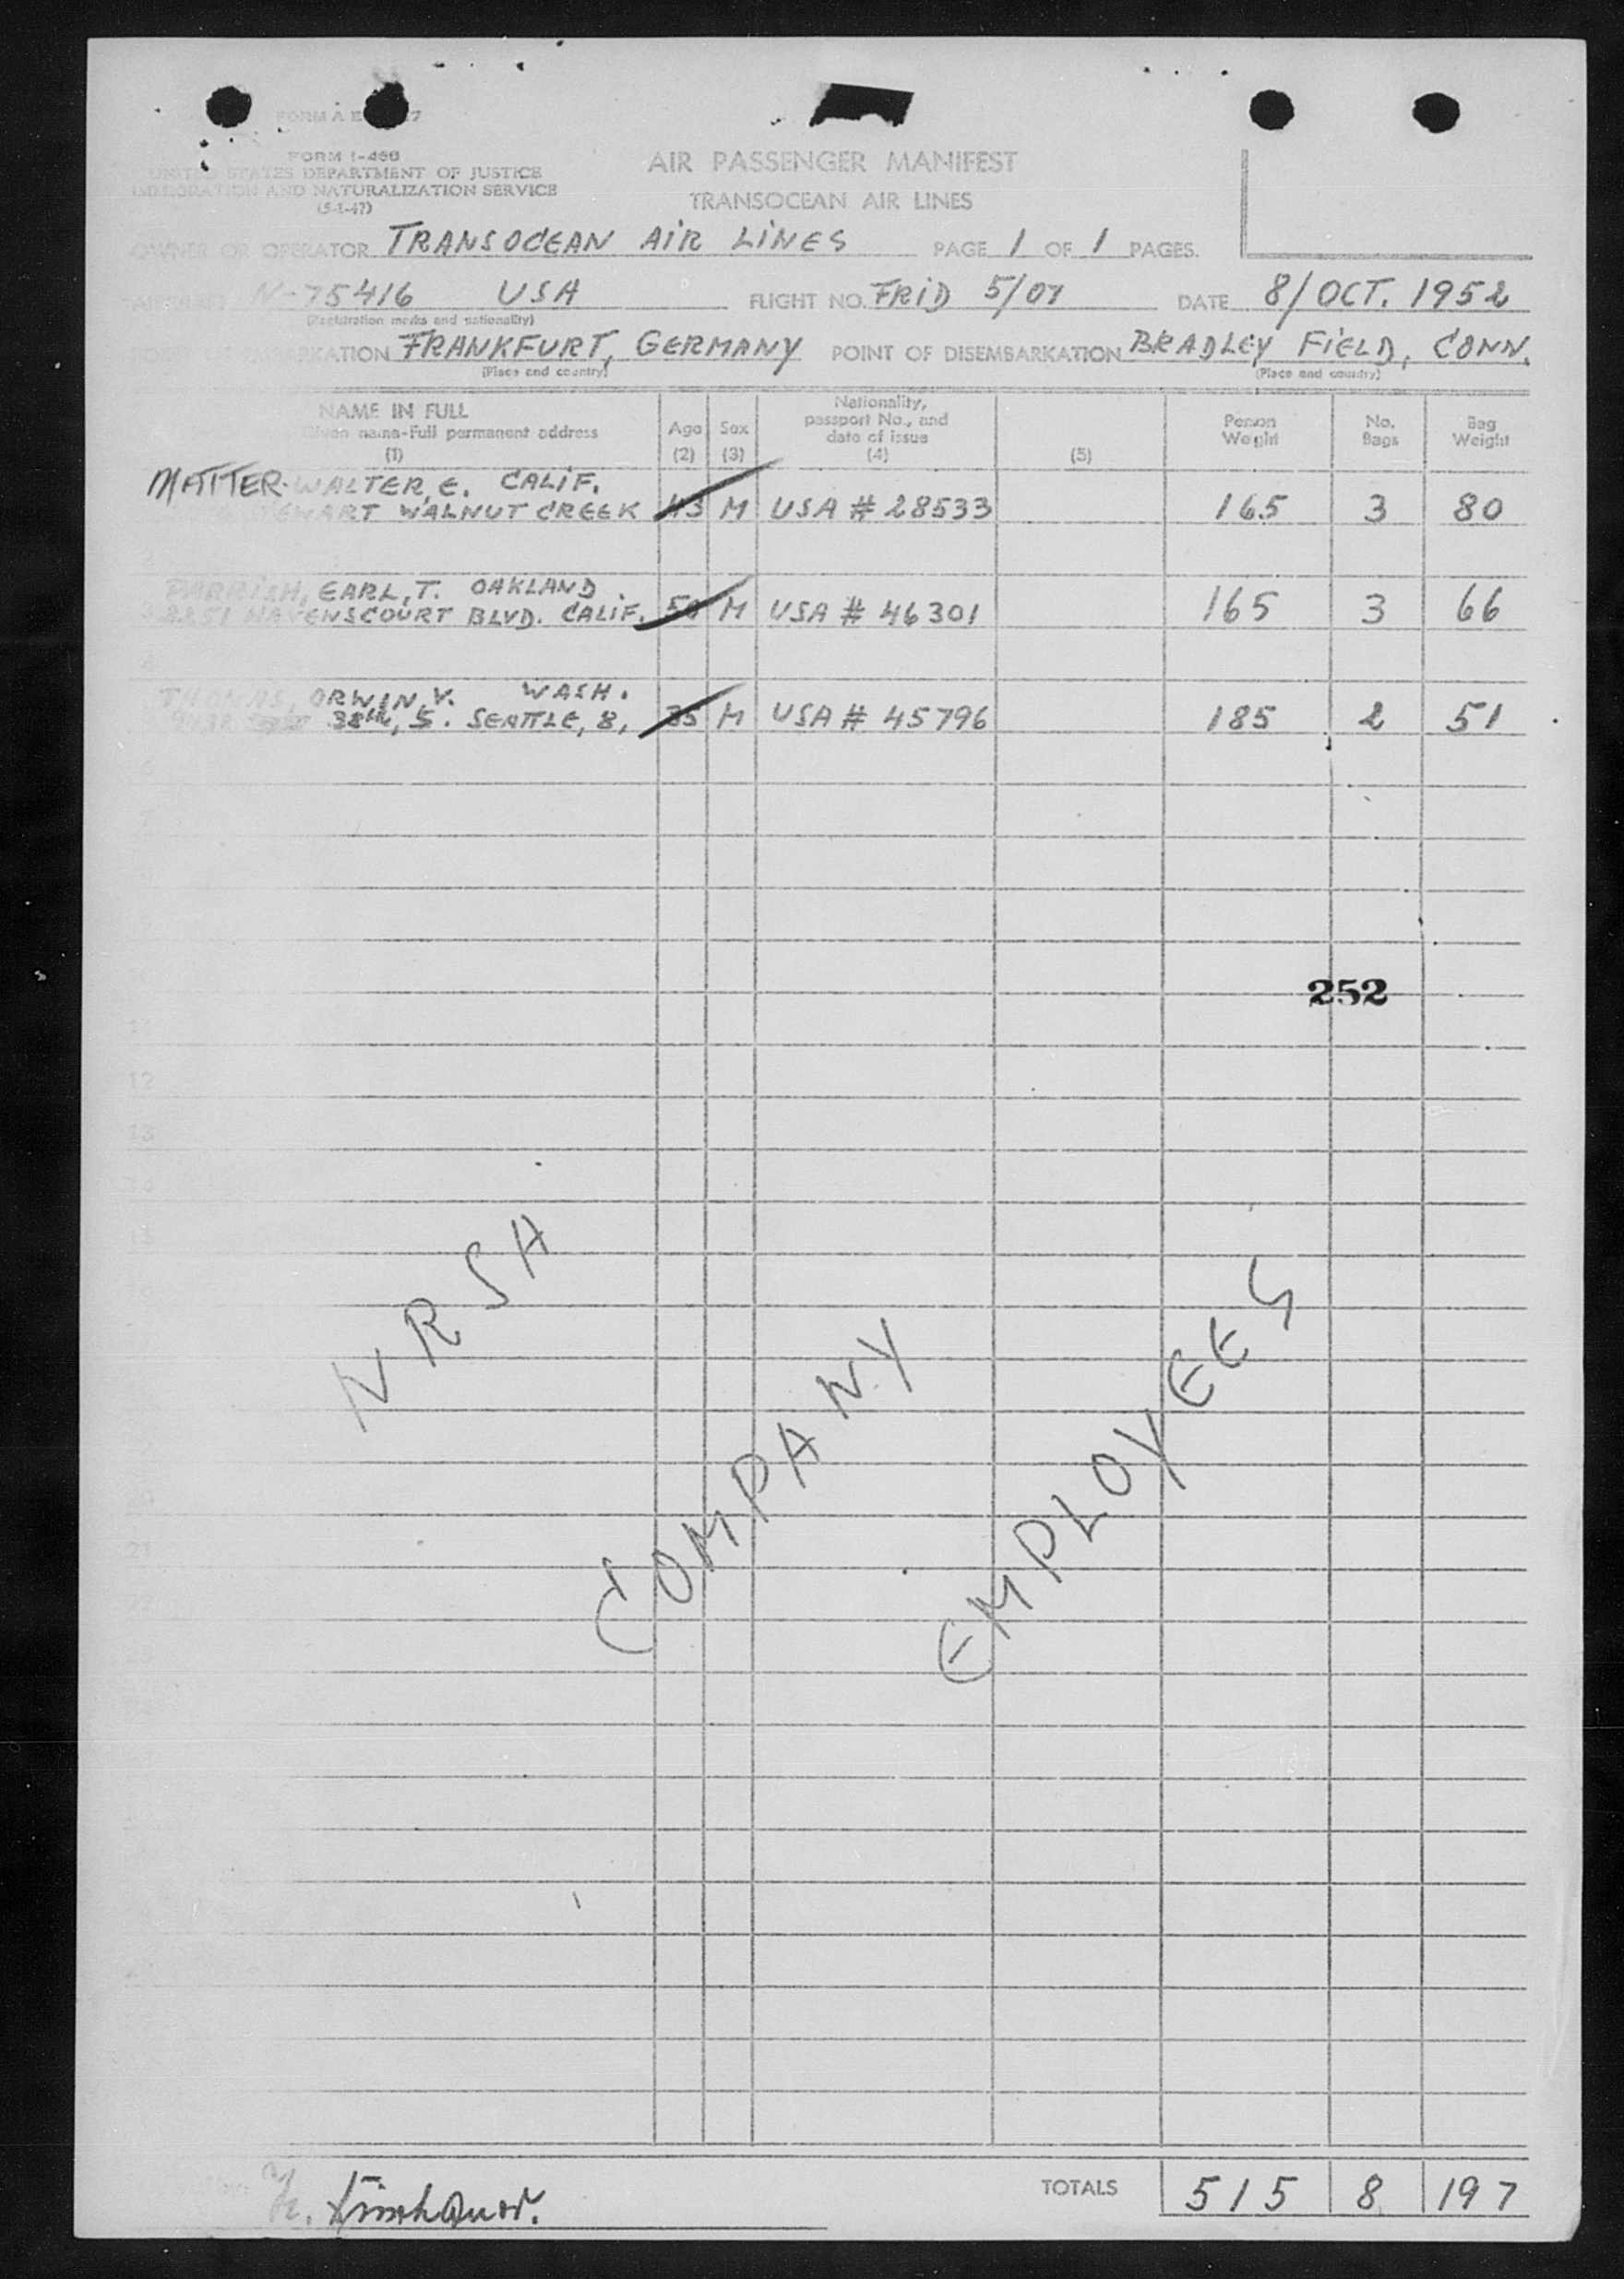 FORM 1-466
UNITED STATES DEPARTMENT OF JUSTICE
IMMIGRATION AND NATURALIZATION SERVICE
(5-1-47)
AIR PASSENGER MANIFEST
TRANSOCEAN AIR LINES
OWNER OR OPERATOR TRANSOCEAN AIR LINES PAGE 1 OF 1 PAGES.
N-75416 USA FLIGHT NO. FRID 5/07 DATE 8/OCT. 1952
(Registration marks and nationality)
POINT OF EMBARKATION FRANKFURT, GERMANY POINT OF DISEMBARKATION BRADLEY FIELD, CONN.
(Place and country) (Place and country)
NAME IN FULL
Given name-Full permanent address
(1)
Age
(2)
Sex
(3)
Nationality,
passport No., and
date of issue
(4)
(5)
Person
Weight
No.
Bags
Bag
Weight
MATTER-WALTER, E. CALIF.
WALNUT CREEK 43 M USA # 28533 165 3 80
PARRISH, EARL, T. OAKLAND
HAVENSCOURT BLVD. CALIF. 50 M USA # 46301 165 3 66
THOMAS, ORWIN, V. WASH.
38th, S. SEATTLE, 8, 35 M USA # 45796 185 2 51
252
12
13
NRSA
COMPANY
EMPLOYEES
TOTALS 515 8 197